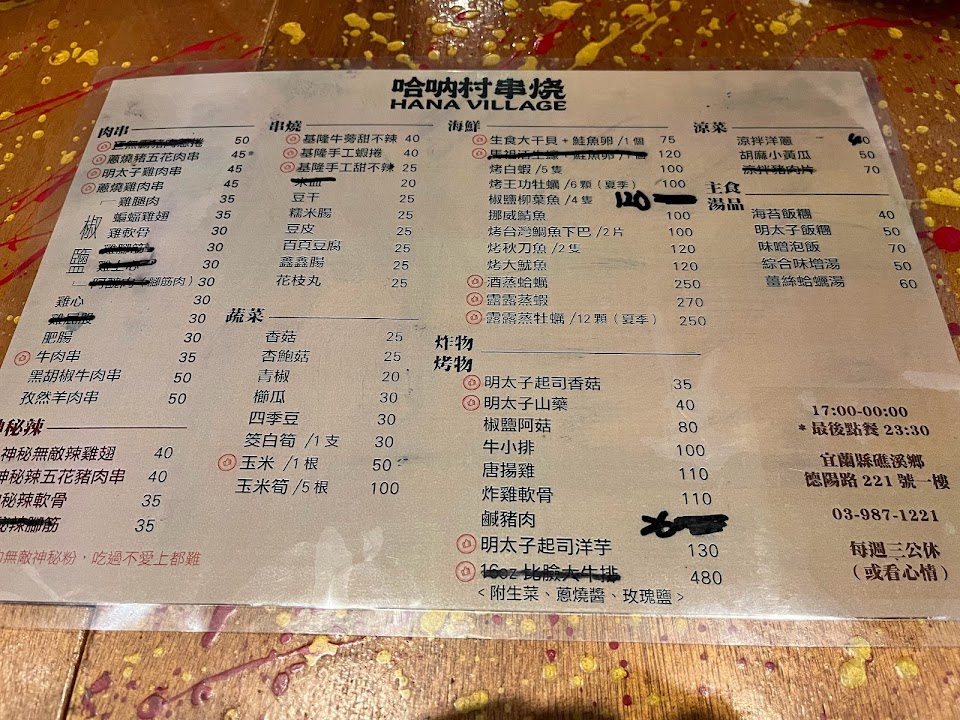 哈吶村串燒
HANA VILLAGE
肉串
50
蔥燒豬五花肉串 45
明太子雞肉串 45
蔥燒雞肉串 45
椒鹽
雞腿肉 35
蝙蝠雞翅 35
雞軟骨 30
雞腳筋 30
30
腳筋肉) 30
雞心 30
雞屁股 30
肥腸 30
牛肉串 35
黑胡椒牛肉串 50
孜然羊肉串 50
神秘辣
神秘無敵辣雞翅 40
神秘辣五花豬肉串 40
秘辣軟骨 35
秘辣腳筋 35
無敵神秘粉，吃過不愛上都難
串燒
基隆牛蒡甜不辣 40
基隆手工蝦捲 40
基隆手工甜不辣 25
米血 20
豆干 25
糯米腸 25
豆皮 25
百頁豆腐 25
鑫鑫腸 25
花枝丸 25
蔬菜
香菇 25
杏鮑菇 25
青椒 20
櫛瓜 30
四季豆 30
筊白筍 /1支 30
玉米 /1根 50
玉米筍 /5根 100
海鮮
生食大干貝+鮭魚卵 /1個 75
鮭魚卵 /1個 120
烤白蝦 /5隻 100
烤王功牡蠣 /6顆（夏季） 100
椒鹽柳葉魚 /4隻 120
挪威鯖魚 100
烤台灣鯛魚下巴 /2片 100
烤秋刀魚 /2隻 100
烤大魷魚 120
酒蒸蛤蠣 250
露露蒸蝦 270
露露蒸牡蠣 /12顆（夏季） 250
炸物
烤物
明太子起司香菇 35
明太子山藥 40
椒鹽阿菇 80
牛小排 100
唐揚雞 110
炸雞軟骨 110
鹹豬肉
明太子起司洋芋 130
16oz 比臉大牛排 480
<附生菜、蔥燒醬、玫瑰鹽>
涼菜
涼拌洋蔥
胡麻小黃瓜 50
涼拌豬肉片 70
主食
湯品
海苔飯糰 40
明太子飯糰 50
味噌泡飯 70
綜合味增湯 50
薑絲蛤蠣湯 60
17:00-00:00
*最後點餐 23:30
宜蘭縣礁溪鄉
德陽路 221 號一樓
03-987-1221
每週三公休
（或看心情）